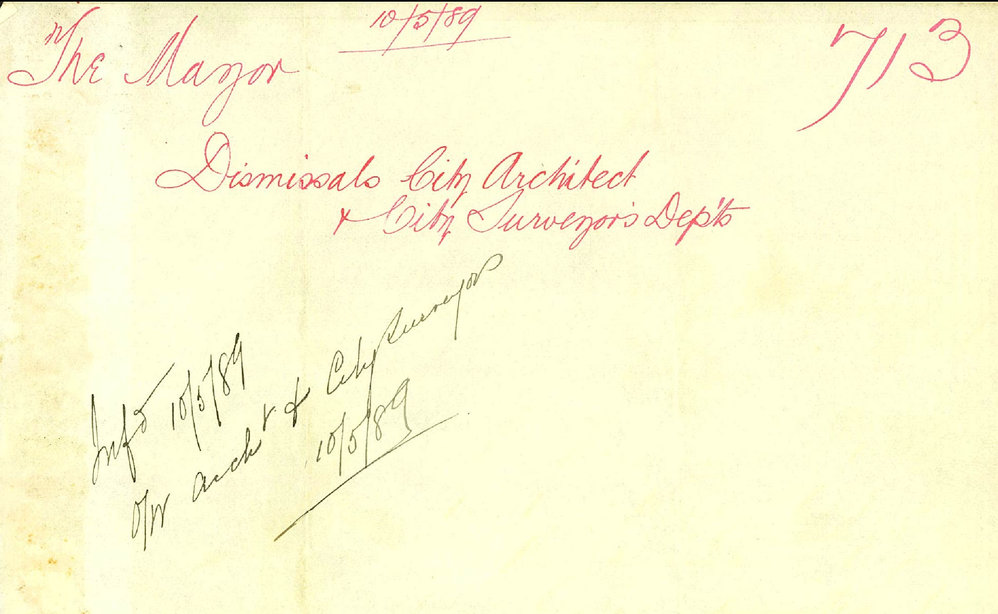 10/5/89
The Mayor
713
Dismissals City Architect
& City Surveyor's Dep'ts
Inf'd 10/5/89
O/W Arch't & City Surveyor
10/5/89